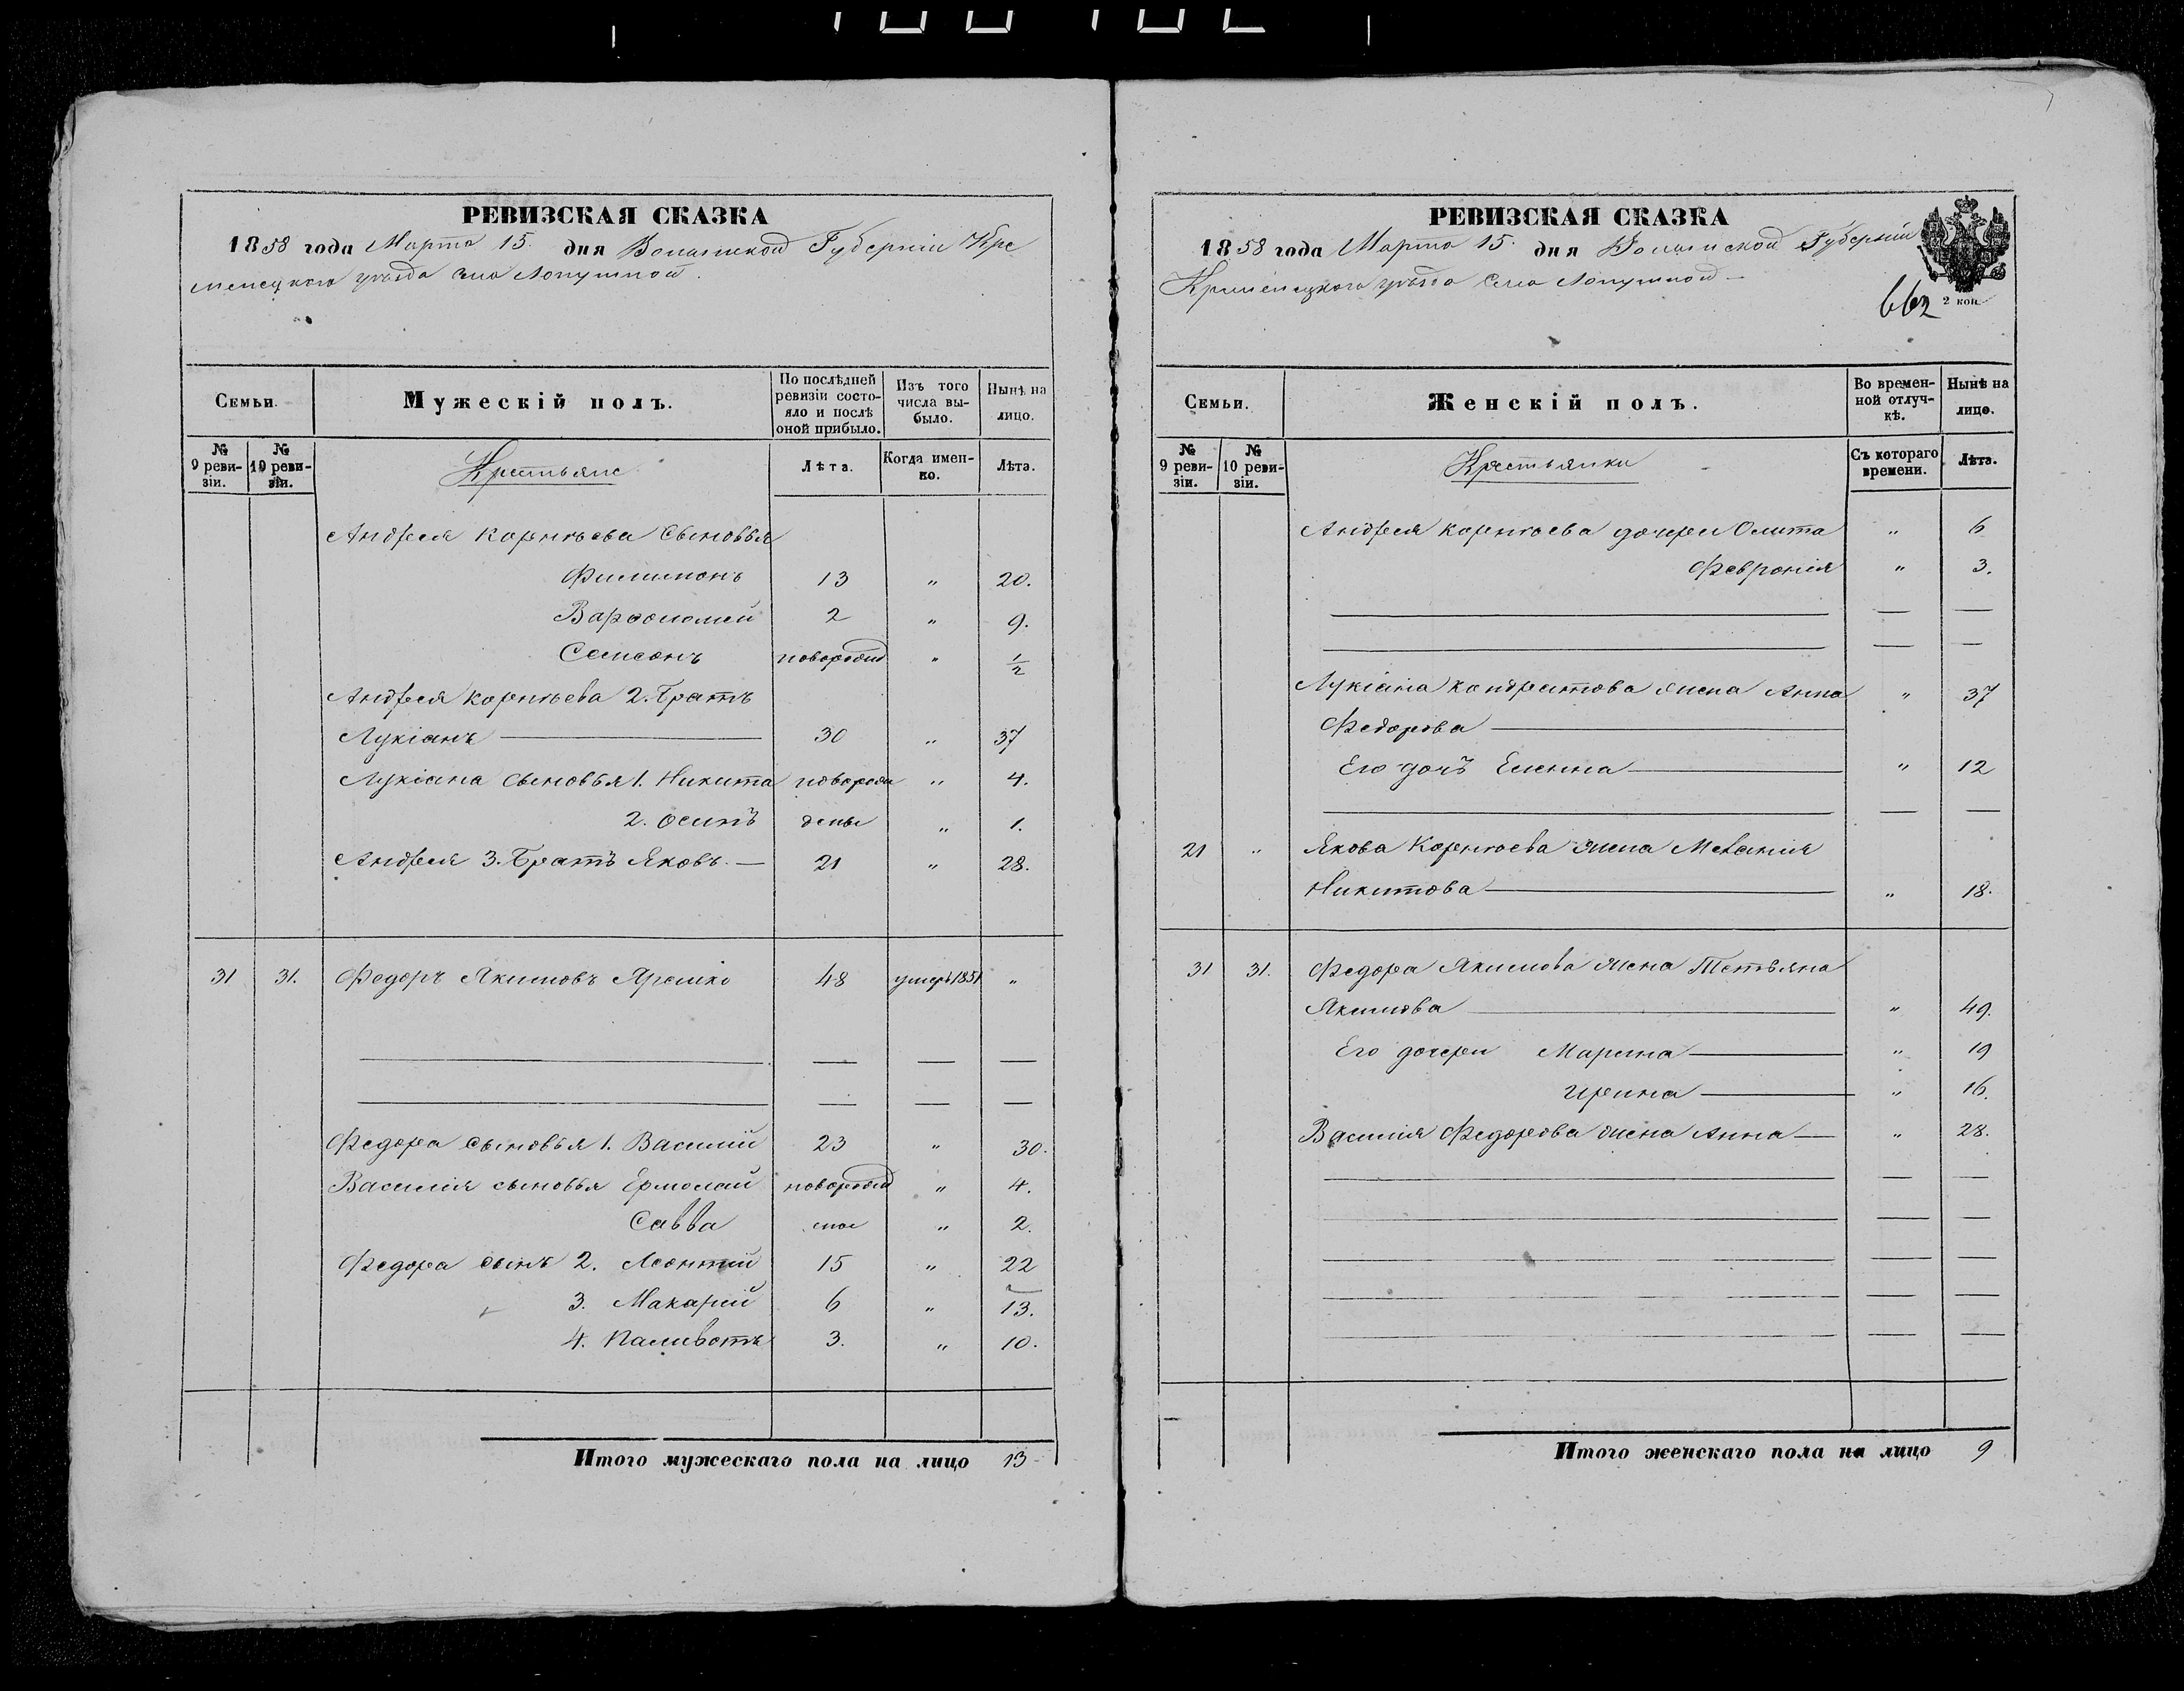 РЕВИЗСКАЯ СКАЗКА
1858 года Марта 15. дня Волынской Губернiи Кре
менецкого уѣзда села Лопушной.
Семьи.
Мужескiй полъ.
По послѣдней ревизiи состояло и послѣ оной прибыло.
Изъ того числа выбыло.
Нынѣ на лицо.
№ 9 ревизiи.
№ 10 ревизiи.
Крестьяне
Лѣта.
Когда именно.
Лѣта.
Андрея Корнѣева Сыновья
Филимонъ 13 " 20.
Варѳоломей 2 " 9.
Самсонъ новорожд " ½
Андрея Корнѣева 2. Братъ
Лукiанъ 30 " 37
Лукiана сыновья 1. Никита новорож " 4.
2. Осипъ деные " 1.
Андрея 3. Братъ Яковъ 21 " 28.
31 31. Федоръ Якимовъ Яремко 48 умеръ 1851 "
Федора сыновья 1. Василiй 23 " 30.
Василiя сыновья Ермолай новорожд " 4.
Савва " 2.
Федора сынъ 2. Леонтiй 15 " 22
3. Макарiй 6 " 13.
4. 3. " 10.
Итого мужескаго пола на лицо 13
РЕВИЗСКАЯ СКАЗКА
1858 года Марта 15. дня Волынской Губернiи
Кременецкого уѣзда Села Лопушной
662
2 коп.
Семьи.
Женскiй полъ.
Во временной отлучкѣ.
Нынѣ на лицо.
№ 9 ревизiи.
№ 10 ревизiи.
Крестьянки
Съ котораго времени.
Лѣта.
Андрея Корнѣева дочери Олита " 6
Февронiя " 3.
Лукiана Кондратова жена Анна " 37
Федорова
Его дочь Еленна " 12
21 " Якова Корнѣева жена Меланiя
Никитова " 18.
31 31. Федора Якимова жена Тетьяна
Якимова " 49.
Его дочери Марина " 19
Ирина " 16.
Василiя Федорова жена Анна " 28.
Итого женскаго пола на лицо 9